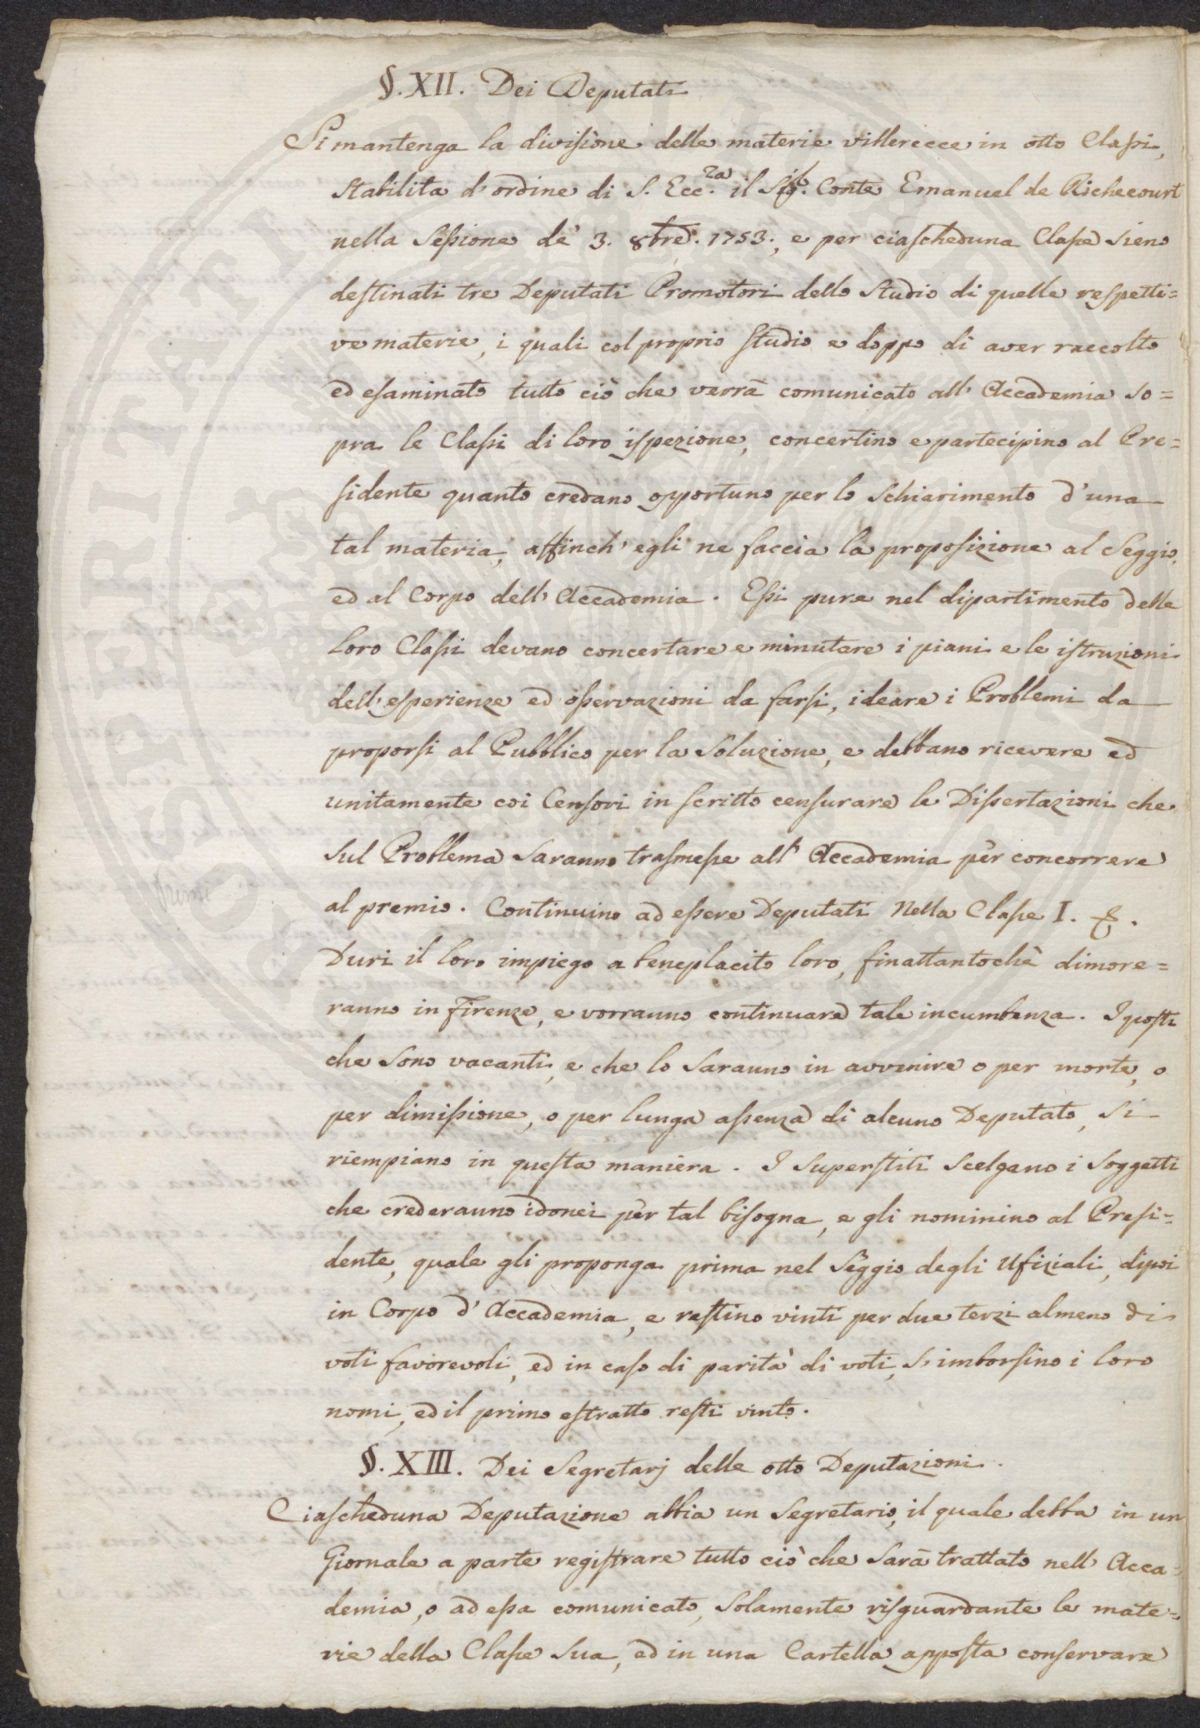 §. XII. Dei Deputati
Si mantenga la divisione delle materie villerecce in otto Classi,
stabilita d'ordine di S. Ecc.za il Sig.r Conte Emanuel de Richecourt
nella Sessione de' 3. 8bre. 1753., e per ciascheduna Classe sieno
destinati tre Deputati Promotori dello studio di quelle respetti=
ve materie, i quali col proprio studio e doppo di aver raccolto
ed esaminato tutto ciò che verrà comunicato all' Accademia so=
pra le Classi di loro ispezione, concertino e partecipino al Pre=
sidente quanto credano opportuno per lo schiarimento d'una
tal materia, affinch' egli ne faccia la proposizione al Seggio,
ed al Corpo dell' Accademia. Essi pure nel dipartimento delle
loro Classi devano concertare e minutare i piani e le istruzioni
dell' esperienze ed osservazioni da farsi, ideare i Problemi da
proporsi al Pubblico per la Soluzione, e debbano ricevere ed
unitamente coi Censori in scritto censurare le Dissertazioni che
sul Problema saranno trasmesse all' Accademia per concorrere
al premio. Continuino ad essere Deputati Nella Classe I. &.
Duri il loro impiego a beneplacito loro, finattantochè dimore=
ranno in Firenze, e vorranno continuare tale incumbenza. I posti
che sono vacanti, e che lo saranno in avvenire o per morte, o
per dimissione, o per lunga assenza di alcuno Deputato, si
riempiano in questa maniera. I superstiti scelgano i soggetti
che crederanno idonei per tal bisogna, e gli nominino al Presi=
dente, quale gli proponga prima nel Seggio degli Ufiziali, dipoi
in Corpo d' Accademia, e restino vinti per due terzi almeno di
voti favorevoli, ed in caso di parità di voti, s' imborsino i loro
nomi, ed il primo estratto resti vinto.
§. XIII. Dei Segretarj delle otto Deputazioni.
Ciascheduna Deputazione abbia un Segretario, il quale debba in un
Giornale a parte registrare tutto ciò che sarà trattato nell' Acca=
demia, o ad essa comunicato, solamente risguardante le mate=
rie della Classe sua, ed in una Cartella apposta conservare